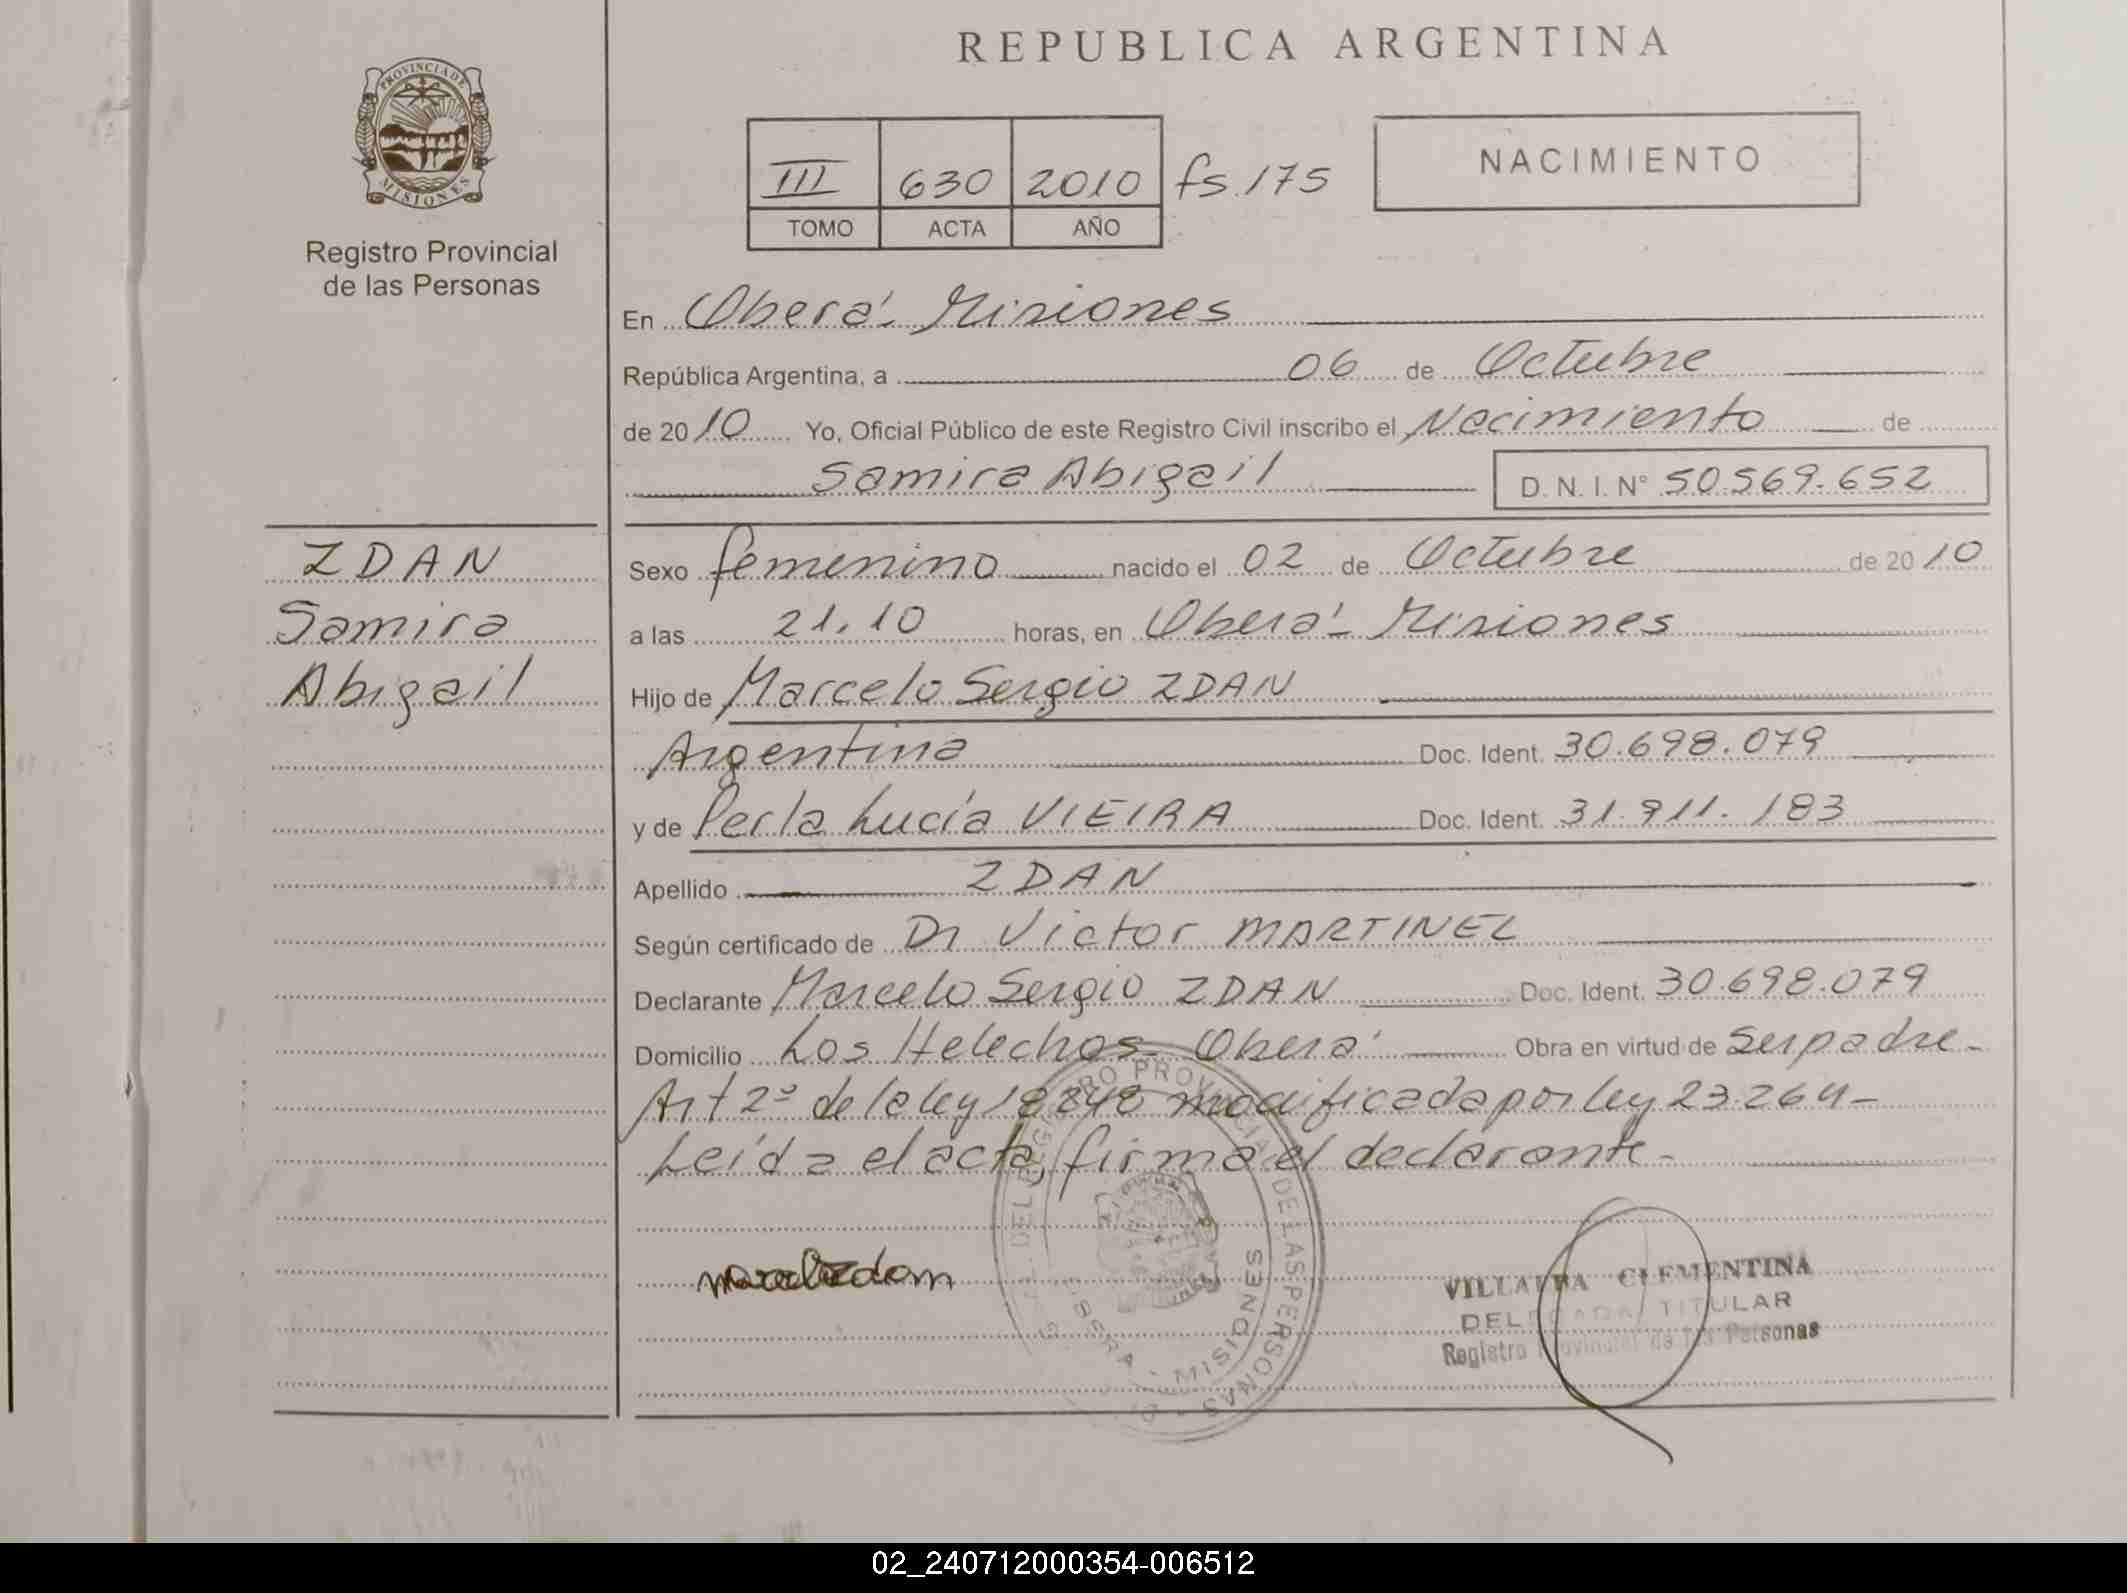 REPUBLICA ARGENTINA
PROVINCIA DE
MISIONES
Registro Provincial
de las Personas
III 630 2010 fs.175
TOMO ACTA AÑO
NACIMIENTO
En Oberá - Misiones
República Argentina, a 06 de Octubre
de 2010 Yo, Oficial Público de este Registro Civil inscribo el Nacimiento de
Samira Abigail D.N.I. N° 50.569.652
ZDAN
Samira
Abigail
Sexo femenino nacido el 02 de Octubre de 2010
a las 21,10 horas, en Oberá - Misiones
Hijo de Marcelo Sergio ZDAN
Argentina Doc. Ident. 30.698.079
y de Perla Lucía VIEIRA Doc. Ident. 31.911.183
Apellido ZDAN
Según certificado de Dr Victor MARTINEZ
Declarante Marcelo Sergio ZDAN Doc. Ident. 30.698.079
Domicilio Los Helechos - Oberá Obra en virtud de Ser padre -
Art 2º de la ley 18248 modificada por ley 23264 -
Leída el acta, firma el declarante -
DEL REGISTRO PROVINCIAL DE LAS PERSONAS
MISIONES
VILLALBA CLEMENTINA
DELEGADA TITULAR
Registro Provincial de las Personas
02_240712000354-006512